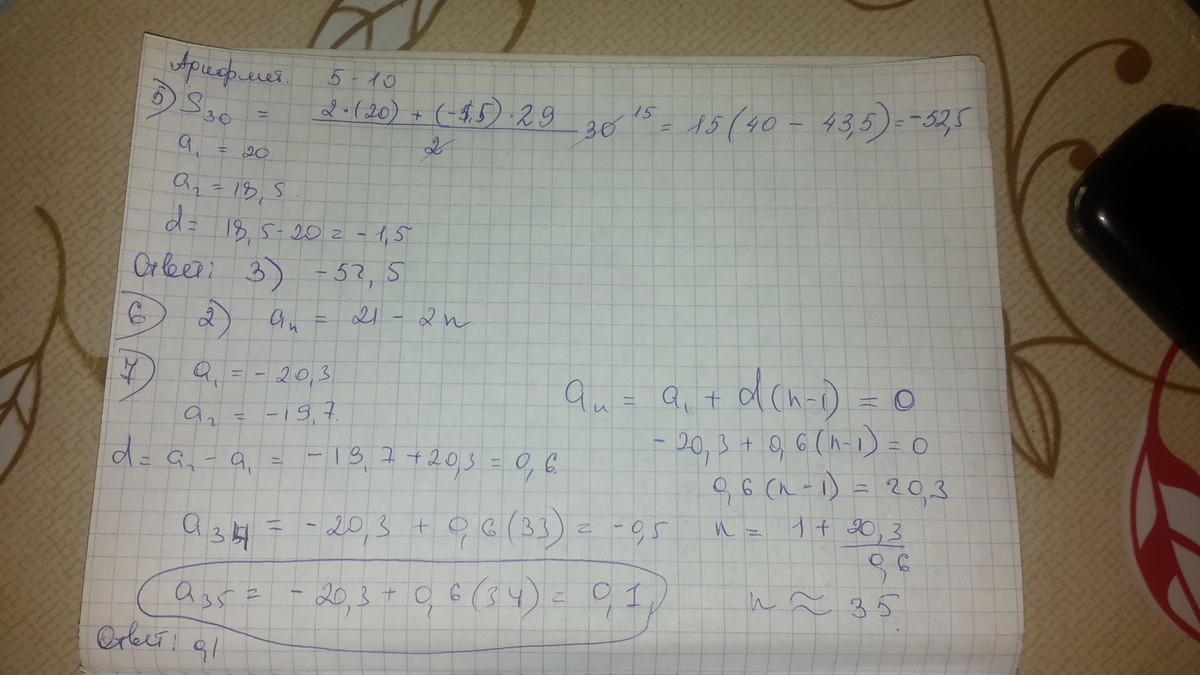 Арифмет. 5-10
5) S₃₀ = (2·(20) + (-1,5)·29)/2 30 ¹⁵ = 15(40 - 43,5) = -52,5
a₁ = 20
a₂ = 18,5.
d = 18,5-20 = -1,5
Ответ: 3) -52,5
6) 2) aₙ = 21 - 2n
7) a₁ = -20,3
a₂ = -19,7.
d = a₂ - a₁ = -19,7 + 20,3 = 0,6.
a₃₄ = -20,3 + 0,6(33) = -0,5
a₃₅ = -20,3 + 0,6(34) = 0,1
Ответ: 0,1
aₙ = a₁ + d(n-1) = 0
-20,3 + 0,6(n-1) = 0
0,6(n-1) = 20,3
n = 1 + 20,3/0,6
n ≈ 35.